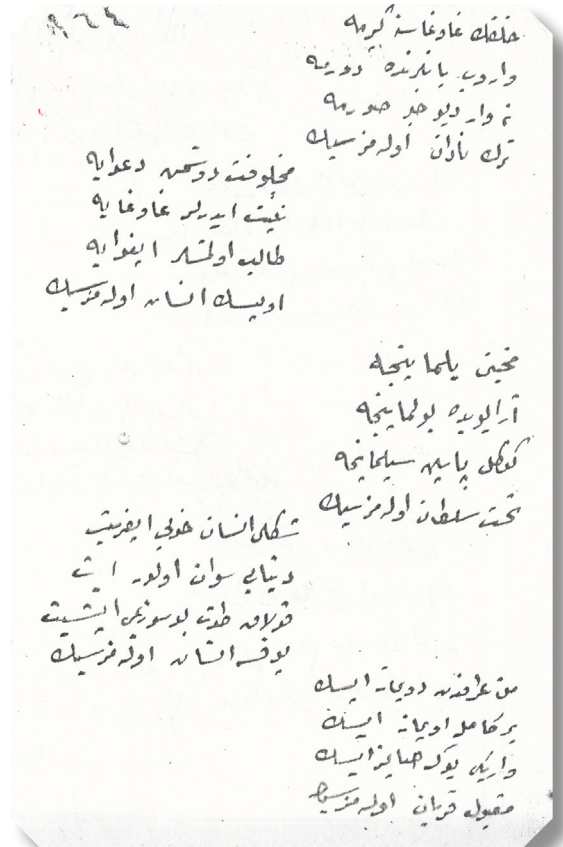 ٩٦٤
خلقك غاوغاسنه كيرمه
واروب يانلرنده دورمه
نه وار ديو خبر صورمه
ترك نادان اوله مزسيك
مخلوقت دوشمن دعوايه
غيبت ايدرلر غاوغايه
طالب اولمشلر ايغوايه
اويسك انسان اوله مزسيك
يلما ينجه
آرايوبده بولما ينجه
كوكل پاسين سيلماينجه
تحت سلطان اوله مزسيك
شكلى انسان خويى ايفريت
دنيايى سوان اولور ايت
قولاق طوت بو سوزمى ايشيت
يوقسه انسان اوله مزسيك
من عرفدن دويمانه ايسك
بر كامله اويمانه ايسك
ايسك
مقبول قربان اوله مزسيك